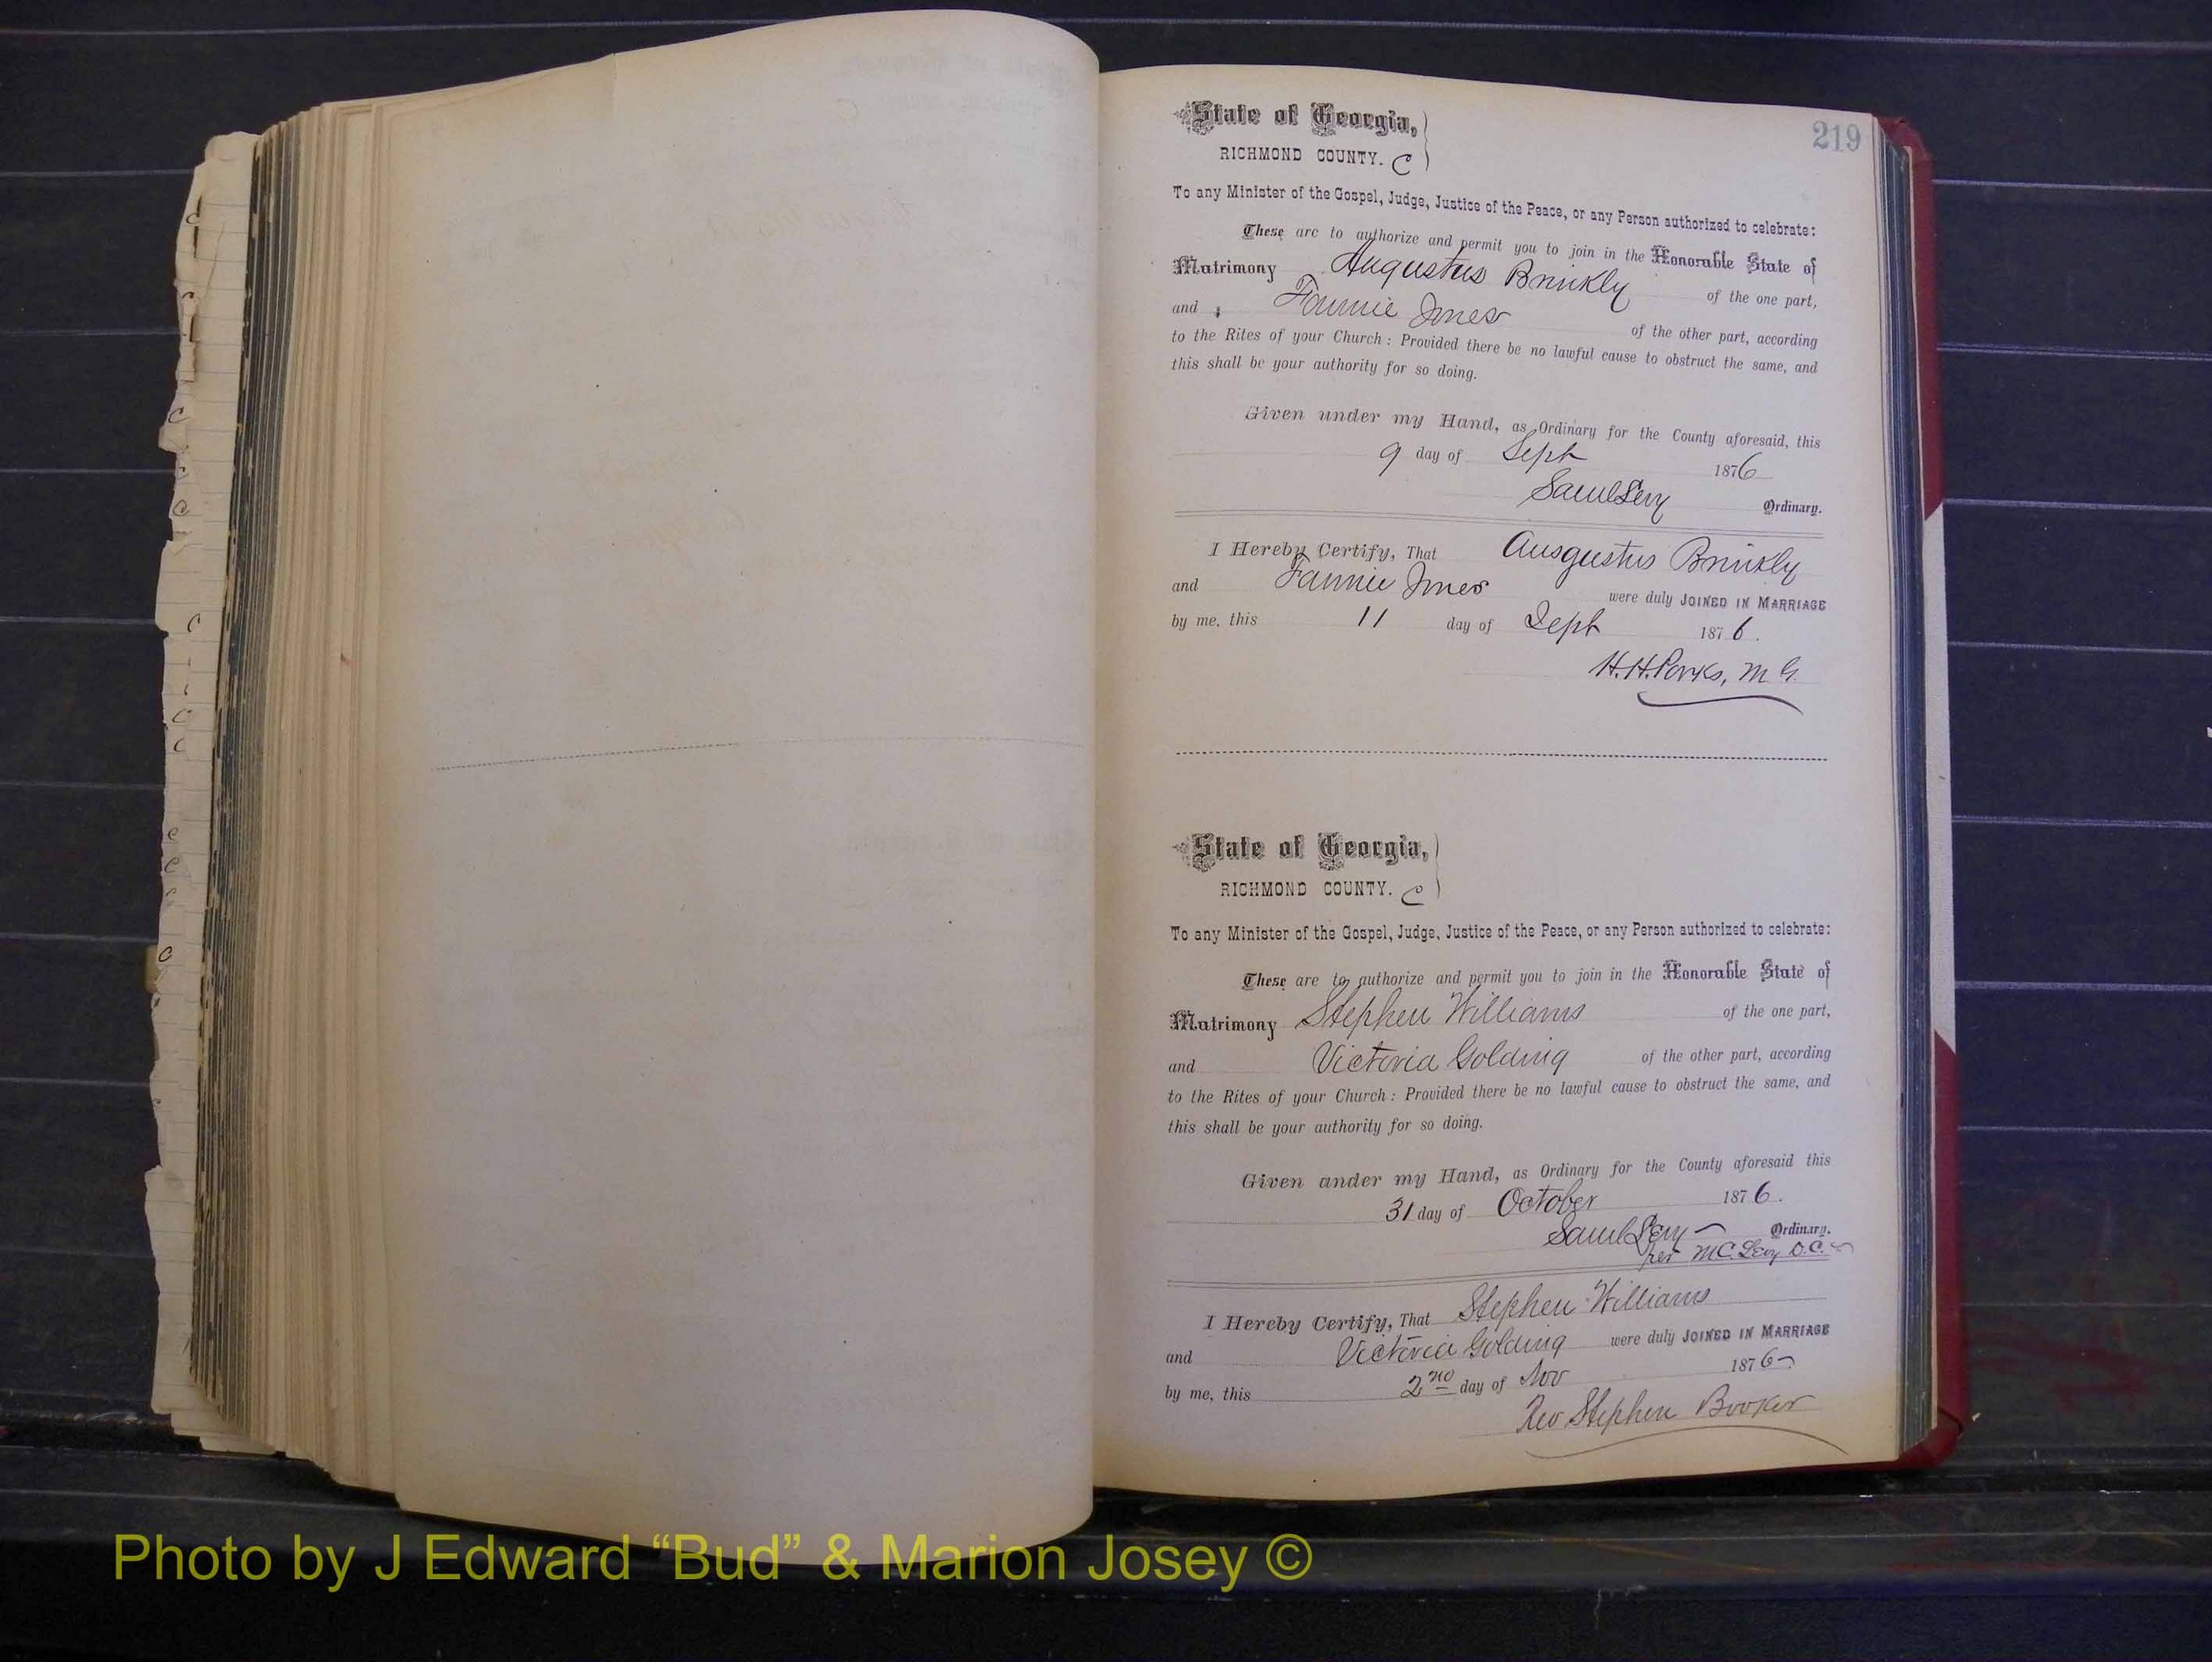 219
State of Georgia,
RICHMOND COUNTY. C
To any Minister of the Gospel, Judge, Justice of the Peace, or any Person authorized to celebrate:
These are to authorize and permit you to join in the Honorable State of
Matrimony Augustus Brinkly of the one part,
and Fannie Jones of the other part, according
to the Rites of your Church: Provided there be no lawful cause to obstruct the same, and
this shall be your authority for so doing.
Given under my Hand, as Ordinary for the County aforesaid, this
9 day of Sept 1876
Saml Levy Ordinary.
I Hereby Certify, That Ausgustus Brinkly
and Fannie Jones were duly JOINED IN MARRIAGE
by me, this 11 day of Sept 1876.
H. H. Parks, M. G.
State of Georgia,
RICHMOND COUNTY. C
To any Minister of the Gospel, Judge, Justice of the Peace, or any Person authorized to celebrate:
These are to authorize and permit you to join in the Honorable State of
Matrimony Stephen Williams of the one part,
and Victoria Golding of the other part, according
to the Rites of your Church: Provided there be no lawful cause to obstruct the same, and
this shall be your authority for so doing.
Given under my Hand, as Ordinary for the County aforesaid this
31 day of October 1876.
Saml Levy Ordinary.
per M.C. Levy D.C.
I Hereby Certify, That Stephen Williams
and Victoria Golding were duly JOINED IN MARRIAGE
by me, this 2nd day of Nov 1876
Rev Stephen Booker
Photo by J Edward “Bud” & Marion Josey ©